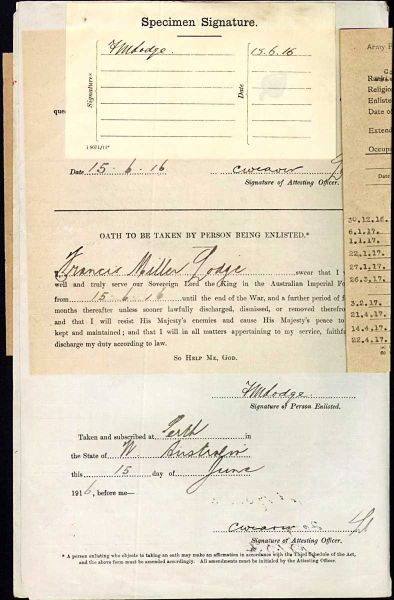 Specimen Signature.
Signatures
FMLodge.
Date
15.6.16
Army F
que
Religio
Enliste
Date o
Extend
Occup
Date
Date 15.6.16
cweaver
Signature of Attesting Officer.
OATH TO BE TAKEN BY PERSON BEING ENLISTED.*
30.12.16.
6.1.17.
1.1.17.
22.1.17.
27.1.17.
26.3.17.
3.2.17.
21.4.17.
14.4.17.
22.4.17.
Francis Miller Lodge swear that I
well and truly serve our Sovereign Lord the King in the Australian Imperial Fo
from 15.6.16 until the end of the War, and a further period of f
months thereafter unless sooner lawfully discharged, dismissed, or removed therefrom
and that I will resist His Majesty's enemies and cause His Majesty's peace to
kept and maintained; and that I will in all matters appertaining to my service, faithf
discharge my duty according to law.
So Help Me, God.
FMLodge
Signature of Person Enlisted.
Taken and subscribed at Perth in
the State of W Australia
this 15 day of June
1916, before me—
cweaver
Signature of Attesting Officer.
* A person enlisting who objects to taking an oath may make an affirmation in accordance with the Third Schedule of the Act,
and the above form must be amended accordingly. All amendments must be initialed by the Attesting Officer.